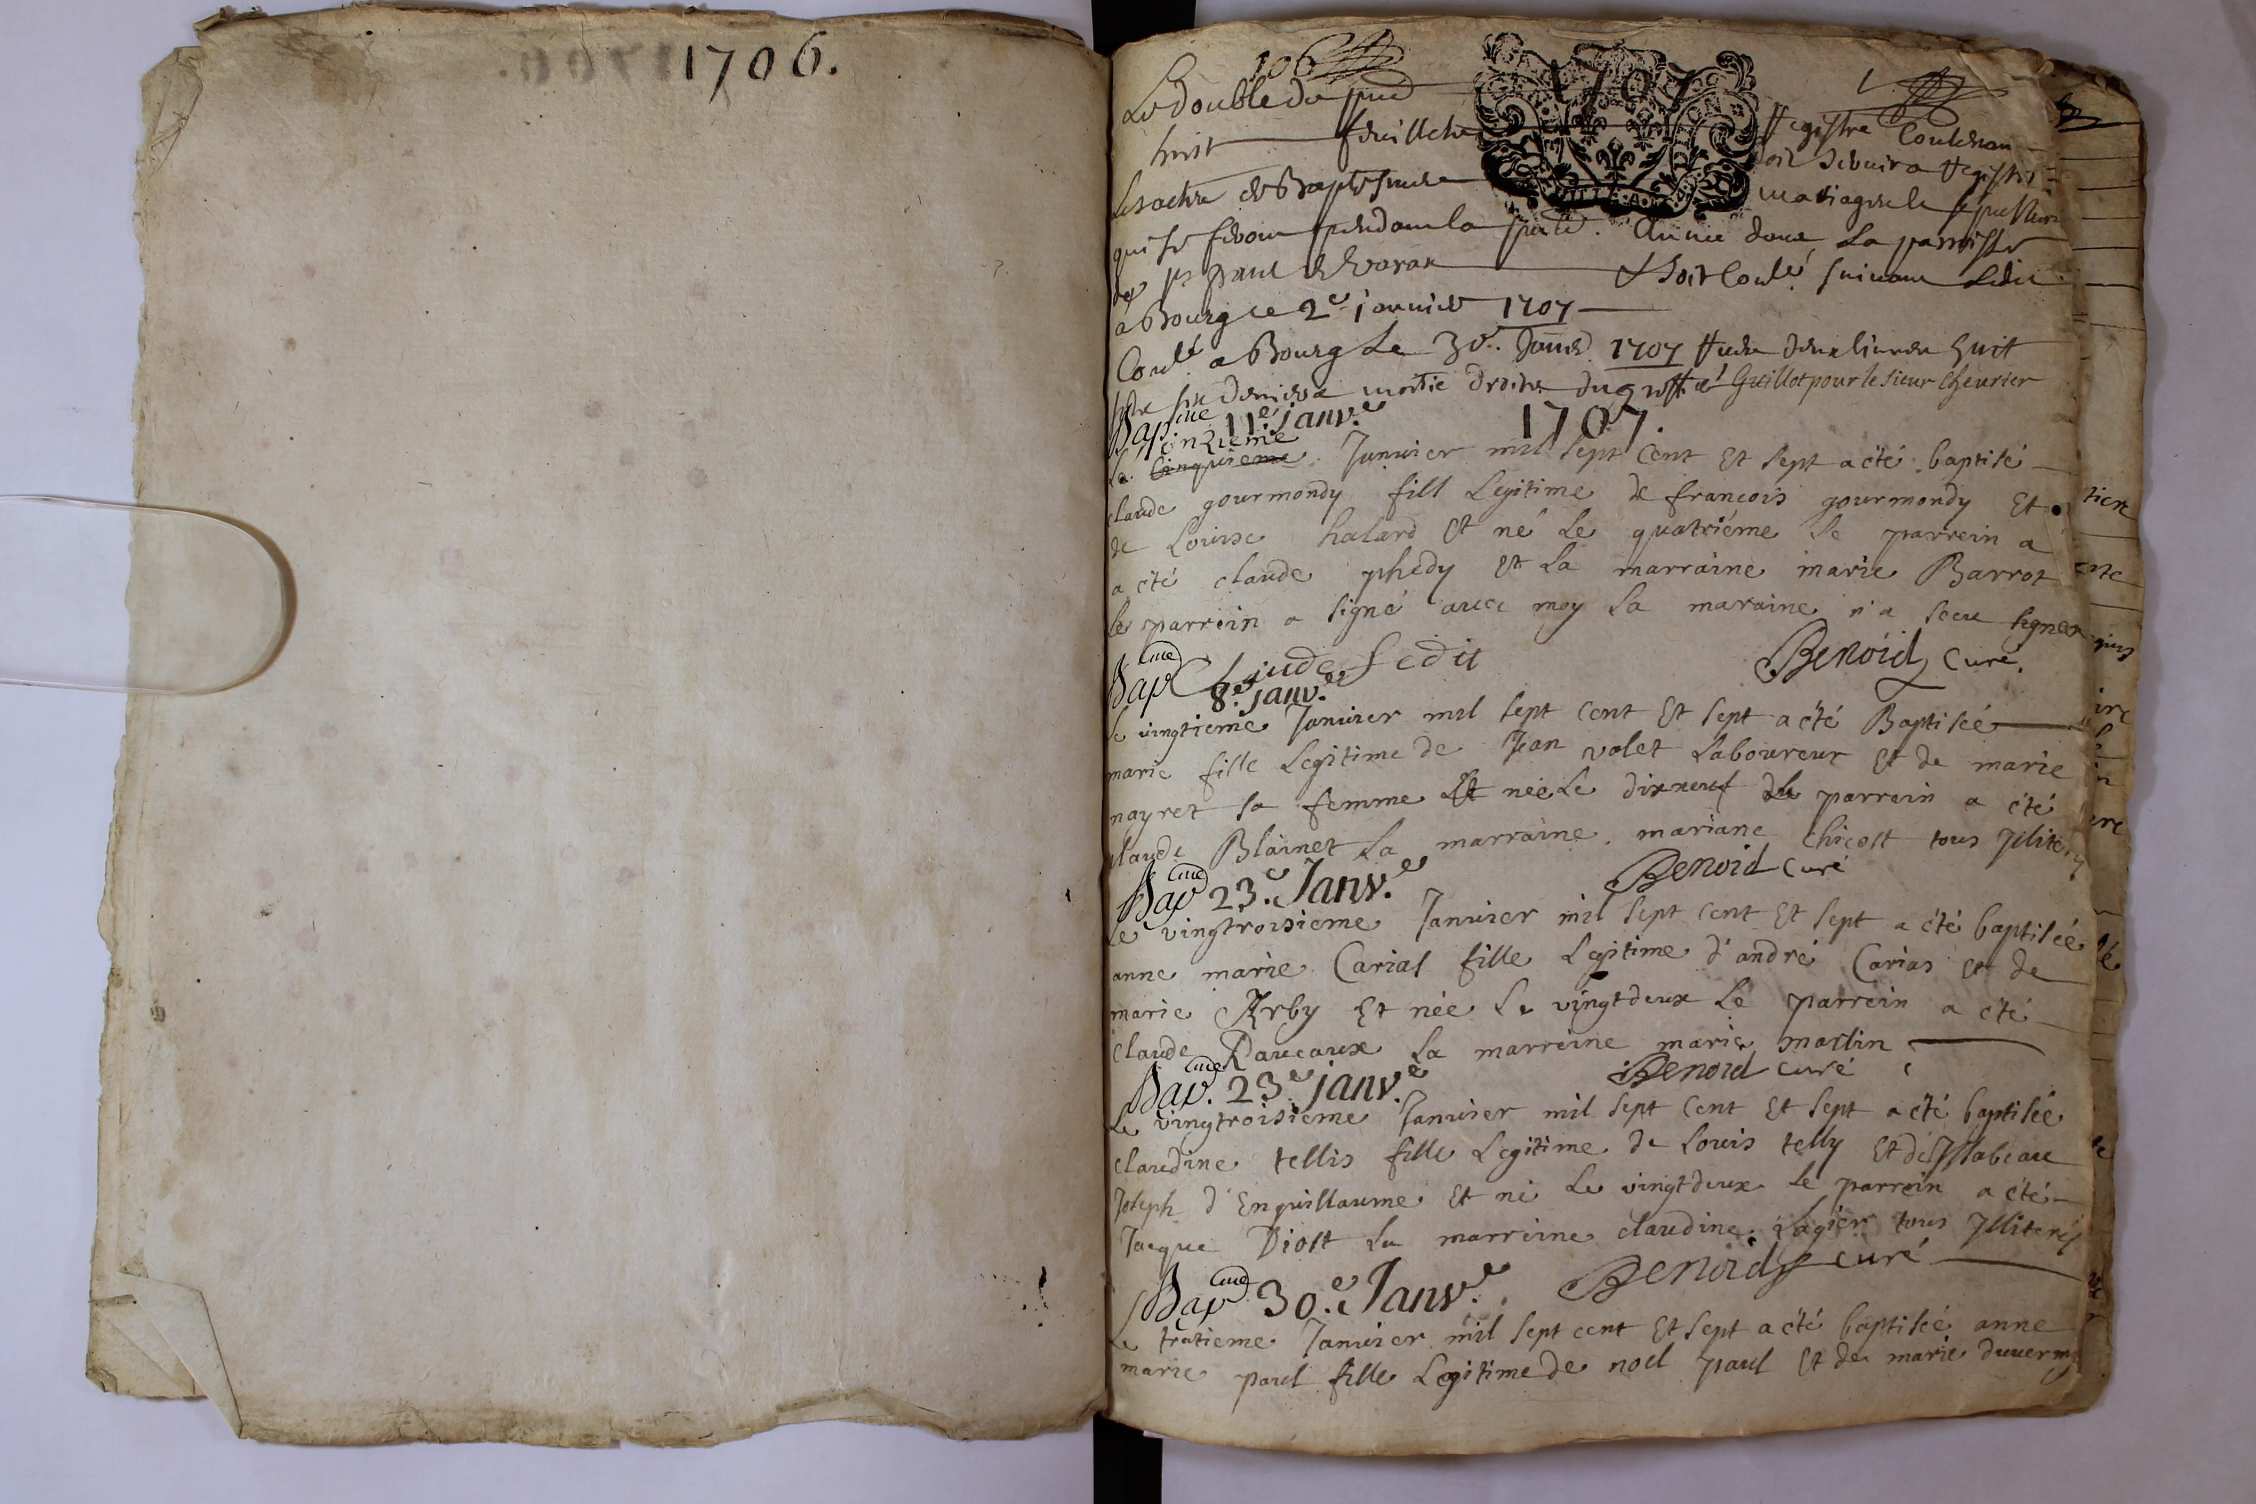 1706.
106
1707
1
Le double du pnt
Registre Contenan
huit feuillets
Les actes de Baptesmes
mariages et sepultures
qui se feront pendant la
Année dans La parroisse
de St Paul de Varax
Soit Conté suivant
a Bourg ce 2e janvier 1707
a Bourg Le 3e Janv 1707 deux livres huit
six deniers moitie droits du Guillot pour le sieur Chevrier
Bapme 11e janv.e 1707.
onzieme
Le Cinquieme Janvier mil sept Cent Et sept a été baptisé
claude gourmondy fill Legitime de francois gourmondy Et
de Louise halard Et né Le quatriéme Le parrein a
a été claude phédy Et La marraine marie Barrot
le parrein a signé avec moy La maraine n'a sceu signer
Claude fedit
Benoid Curé.
Bapme 8e janv.e
Le vingtieme Janvier mil sept cent Et sept a été Baptisée
marie fille Legitime de Jean volet Laboureur Et de marie
mayret sa femme Et née Le dixneuf Le parrein a été
claude Blainet La marraine mariane chicost tous Jlliterés
Benoid Curé
Bapme 23.e Janv.e
Le vingtroisieme Janvier mil sept cent Et sept a été baptisée
anne marie Carias fille Legitime d'andré Carias Et de
marie Arby Et née Le vingtdeux Le parrein a été
claude Daveaux La marreine marie marlin
Benoid curé
Bapme. 23e janv.e
Le vingtroisieme Janvier mil sept Cent Et sept a été baptisée
claudine tellis fille Legitime de Louis telly Et d'Jsabeau
Joseph d'Enguillaume Et né Le vingtdeux Le parrein a été
Jacque Diost La marreine claudine Lagier tous Jlliterés
Benoid curé
Bapme 30.e Janv.e
Le tratieme Janvier mil sept cent Et sept a été baptisée anne
marie paul fille Legitime de noel paul Et de marie duverny